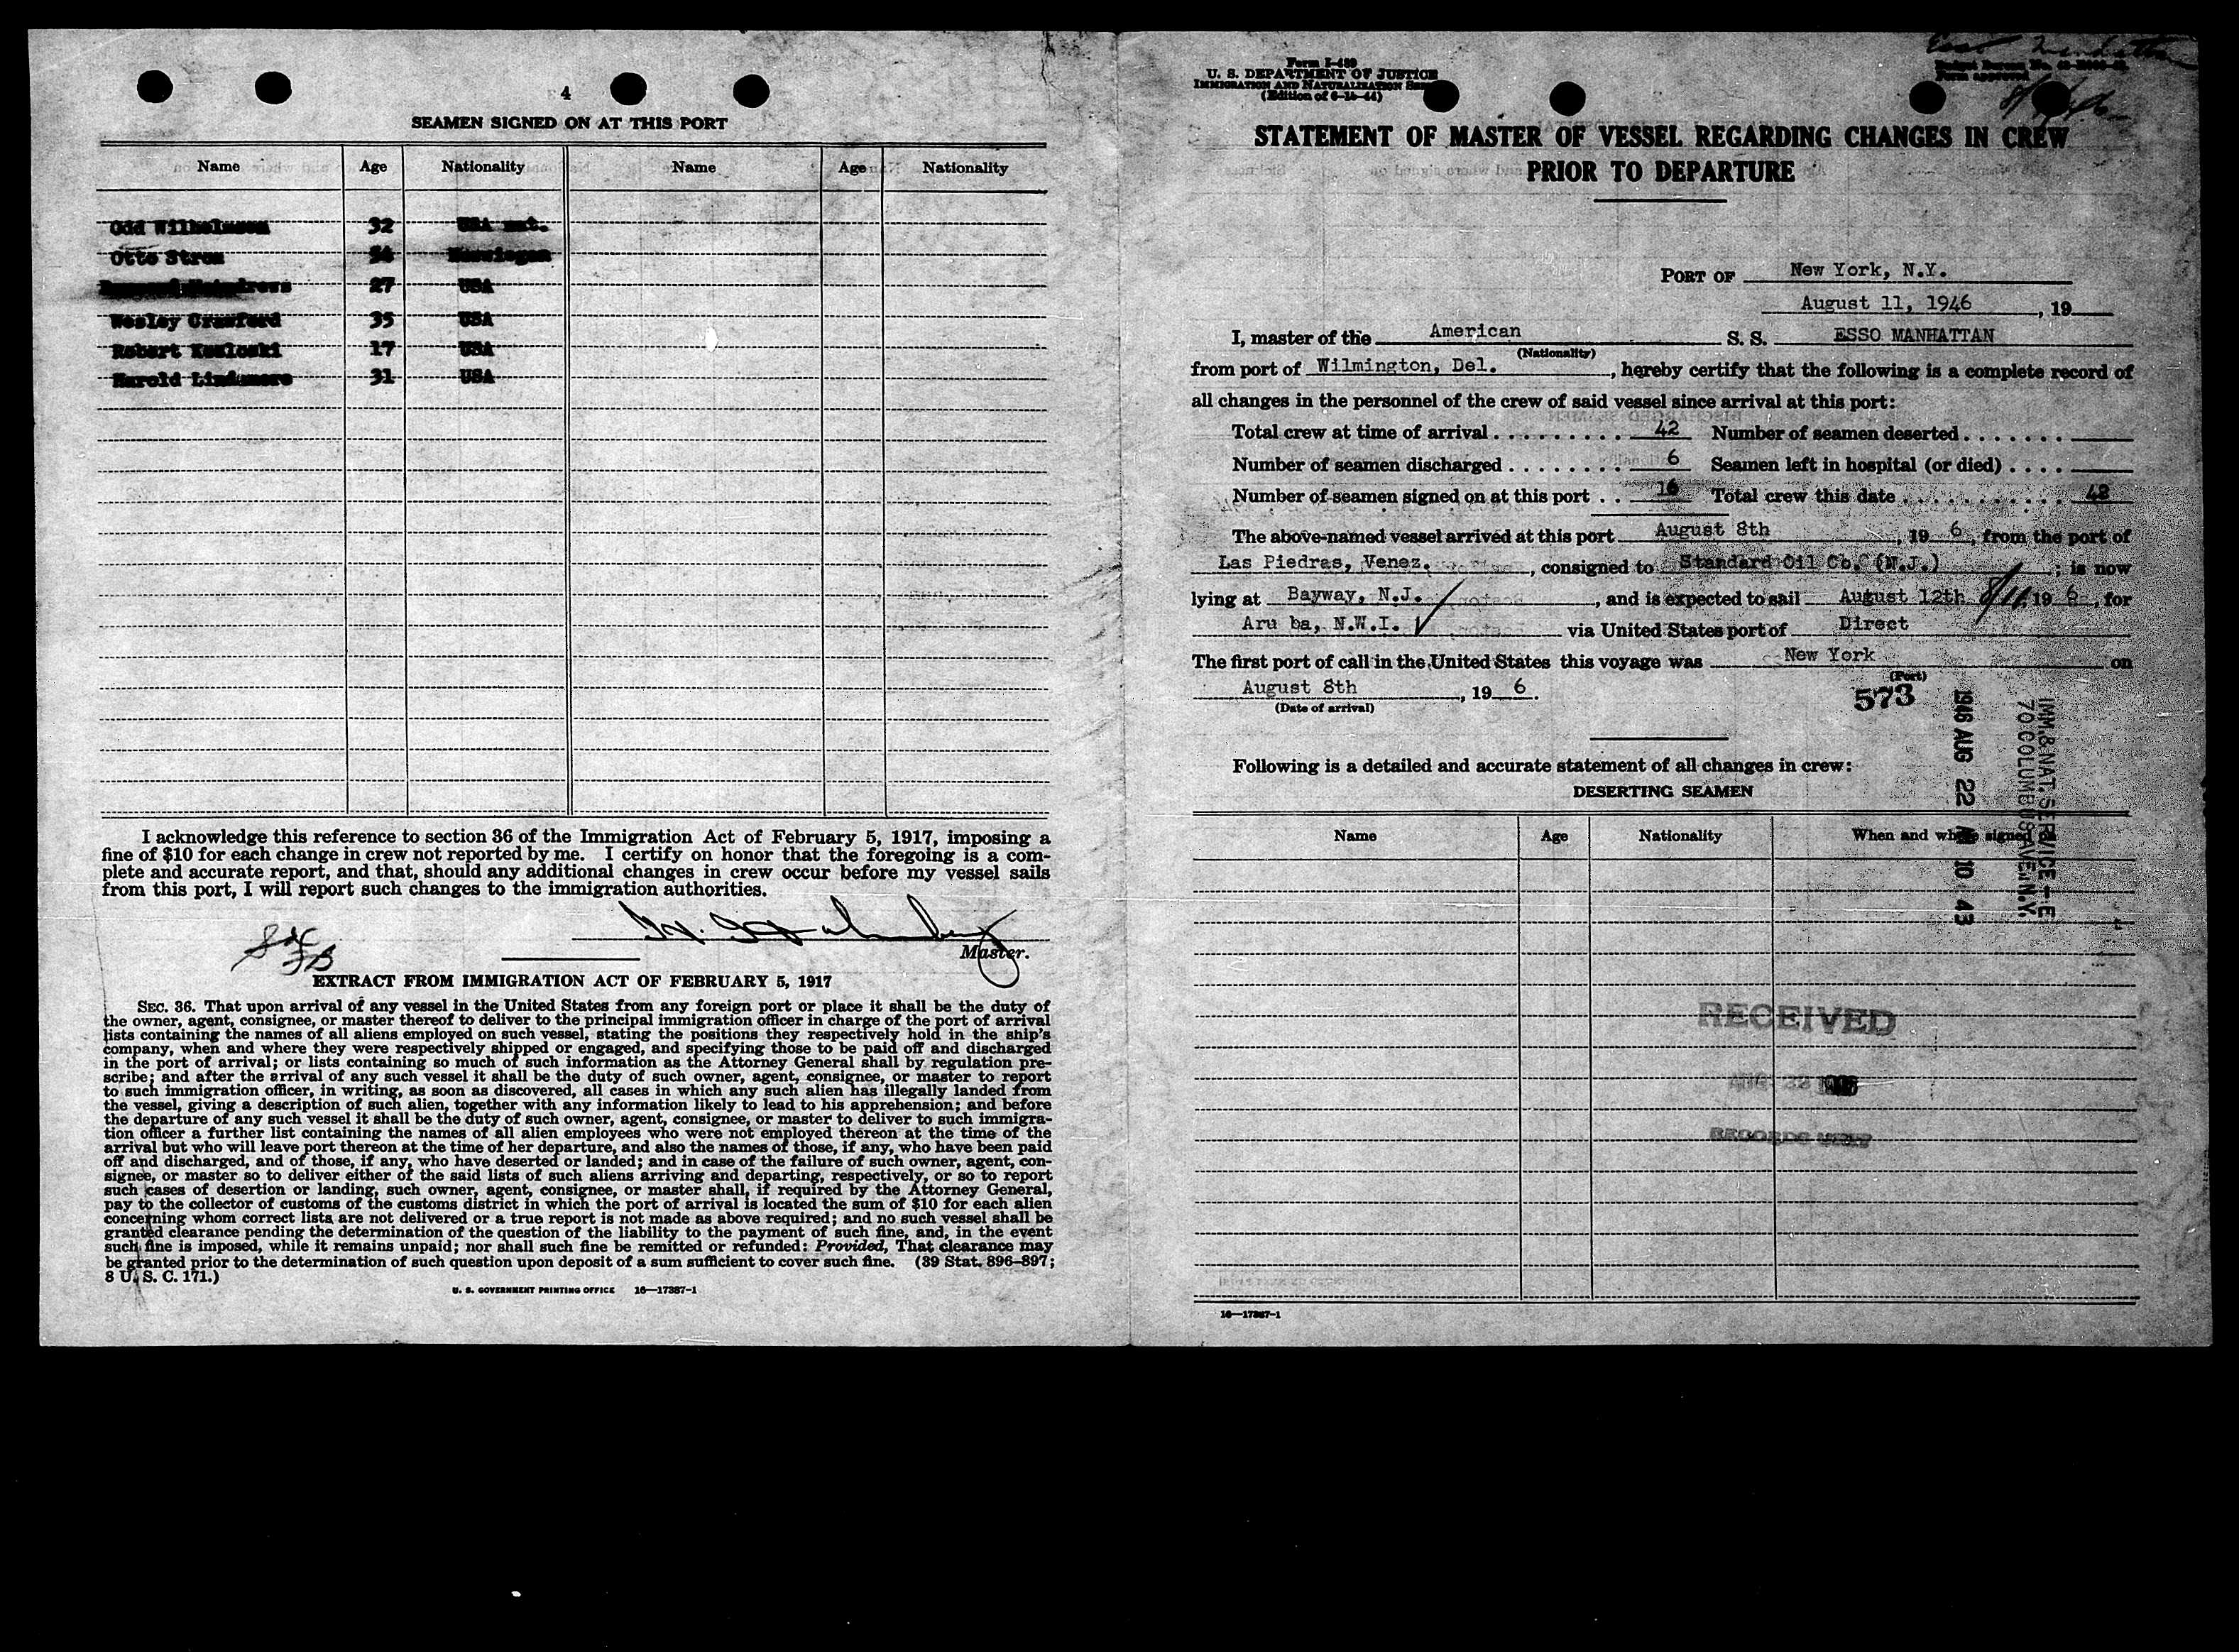 4
SEAMEN SIGNED ON AT THIS PORT
Name Age Nationality Name Age Nationality
Odd Wilhelmsen 32 USA nat.
Otto Strom Norwegian
27 USA
Wesley Crawford 35 USA
Robert 17 USA
Harold 31 USA
I acknowledge this reference to section 36 of the Immigration Act of February 5, 1917, imposing a
fine of $10 for each change in crew not reported by me. I certify on honor that the foregoing is a com-
plete and accurate report, and that, should any additional changes in crew occur before my vessel sails
from this port, I will report such changes to the immigration authorities.
Master.
EXTRACT FROM IMMIGRATION ACT OF FEBRUARY 5, 1917
SEC. 36. That upon arrival of any vessel in the United States from any foreign port or place it shall be the duty of
the owner, agent, consignee, or master thereof to deliver to the principal immigration officer in charge of the port of arrival
lists containing the names of all aliens employed on such vessel, stating the positions they respectively hold in the ship's
company, when and where they were respectively shipped or engaged, and specifying those to be paid off and discharged
in the port of arrival; or lists containing so much of such information as the Attorney General shall by regulation pre-
scribe; and after the arrival of any such vessel it shall be the duty of such owner, agent, consignee, or master to report
to such immigration officer, in writing, as soon as discovered, all cases in which any such alien has illegally landed from
the vessel, giving a description of such alien, together with any information likely to lead to his apprehension; and before
the departure of any such vessel it shall be the duty of such owner, agent, consignee, or master to deliver to such immigra-
tion officer a further list containing the names of all alien employees who were not employed thereon at the time of the
arrival but who will leave port thereon at the time of her departure, and also the names of those, if any, who have been paid
off and discharged, and of those, if any, who have deserted or landed; and in case of the failure of such owner, agent, con-
signee, or master so to deliver either of the said lists of such aliens arriving and departing, respectively, or so to report
such cases of desertion or landing, such owner, agent, consignee, or master shall, if required by the Attorney General,
pay to the collector of customs of the customs district in which the port of arrival is located the sum of $10 for each alien
concerning whom correct lists are not delivered or a true report is not made as above required; and no such vessel shall be
granted clearance pending the determination of the question of the liability to the payment of such fine, and, in the event
such fine is imposed, while it remains unpaid; nor shall such fine be remitted or refunded: Provided, That clearance may
be granted prior to the determination of such question upon deposit of a sum sufficient to cover such fine. (39 Stat. 896–897;
8 U. S. C. 171.)
U. S. GOVERNMENT PRINTING OFFICE 16—17387-1
Form I-489
U. S. DEPARTMENT OF JUSTICE
IMMIGRATION AND NATURALIZATION
(Edition of 6-15-44)
STATEMENT OF MASTER OF VESSEL REGARDING CHANGES IN CREW
PRIOR TO DEPARTURE
PORT OF New York, N.Y.
August 11, 1946, 19
I, master of the American S. S. ESSO MANHATTAN
(Nationality)
from port of Wilmington, Del., hereby certify that the following is a complete record of
all changes in the personnel of the crew of said vessel since arrival at this port:
Total crew at time of arrival 42 Number of seamen deserted
Number of seamen discharged 6 Seamen left in hospital (or died)
Number of seamen signed on at this port Total crew this date 42
The above-named vessel arrived at this port August 8th, 19 6, from the port of
Las Piedras, Venez., consigned to Standard Oil Co. (N.J.); is now
lying at Bayway, N.J., and is expected to sail August 12th 8/11, 19 6, for
Aru ba, N.W.I. via United States port of Direct
The first port of call in the United States this voyage was New York on
(Port)
August 8th, 19 6.
(Date of arrival)
573
1946 AUG 22 10 43
IMM. & NAT. SERVICE
70 COLUMBUS AVE. N.Y.
Following is a detailed and accurate statement of all changes in crew:
DESERTING SEAMEN
Name Age Nationality When and where signed on
RECEIVED
AUG 22 1946
RECORDS UNIT
16—17387-1